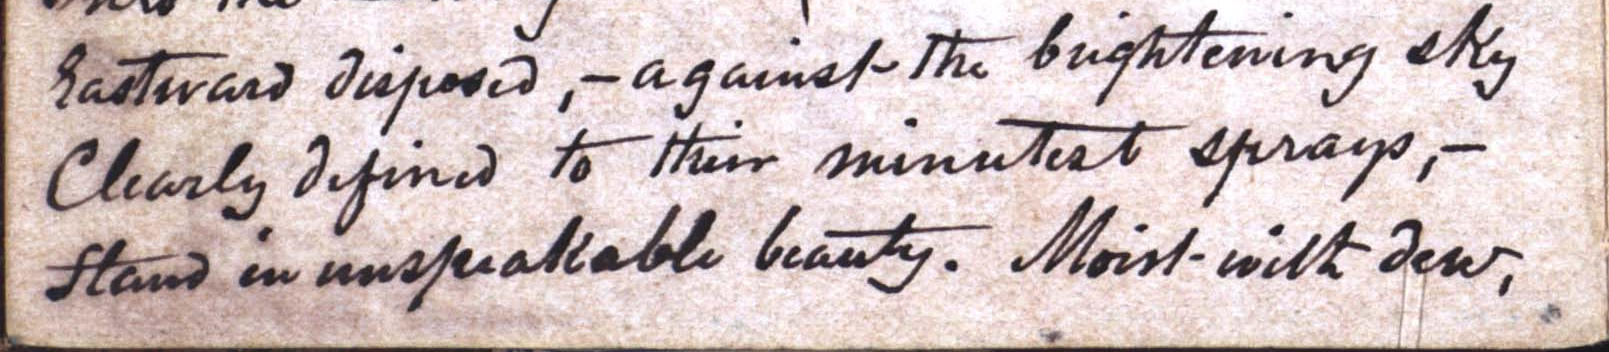 Eastward disposed,—against the brightening sky
Clearly defined to their minutest sprays,—
Stand in unspeakable beauty. Moist with dew,